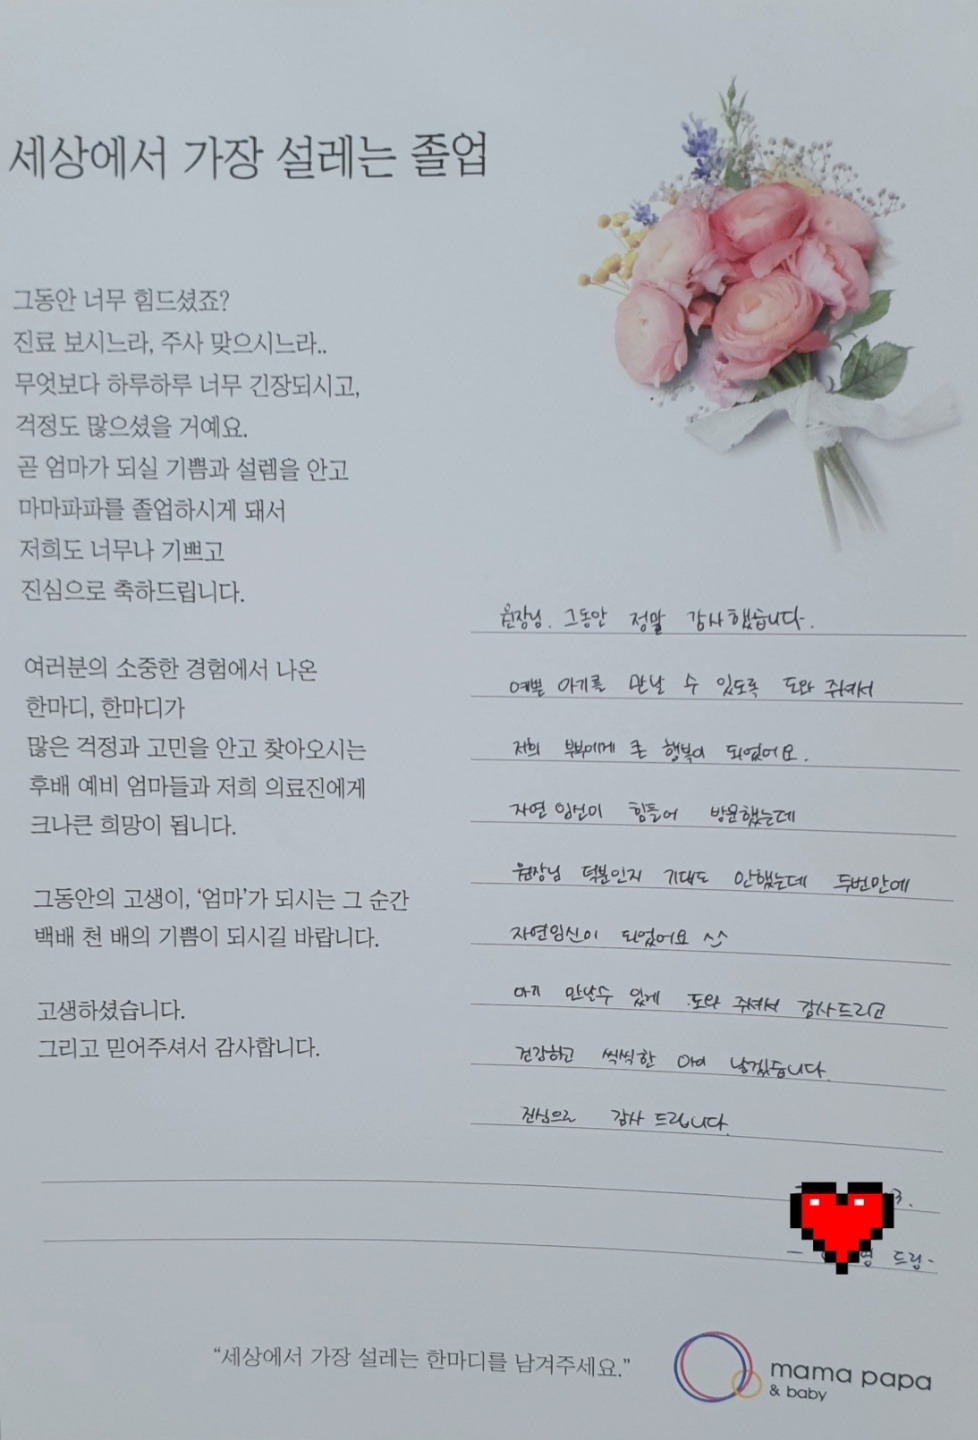 세상에서 가장 설레는 졸업
그동안 너무 힘드셨죠?
진료 보시느라, 주사 맞으시느라..
무엇보다 하루하루 너무 긴장되시고,
걱정도 많으셨을 거예요.
곧 엄마가 되실 기쁨과 설렘을 안고
마마파파를 졸업하시게 돼서
저희도 너무나 기쁘고
진심으로 축하드립니다.
여러분의 소중한 경험에서 나온
한마디, 한마디가
많은 걱정과 고민을 안고 찾아오시는
후배 예비 엄마들과 저희 의료진에게
크나큰 희망이 됩니다.
그동안의 고생이, ‘엄마’가 되시는 그 순간
백배 천 배의 기쁨이 되시길 바랍니다.
고생하셨습니다.
그리고 믿어주셔서 감사합니다.
원장님. 그동안 정말 감사했습니다.
예쁜 아기를 만날 수 있도록 도와주셔서
저희 부부에게 큰 행복이 되었어요.
자연임신이 힘들어 방문했는데
원장님 덕분인지 기대도 안했는데 두번만에
자연임신이 되었어요 ^^
아기 만날수 있게 도와 주셔서 감사드리고
건강하고 씩씩한 아이 낳겠습니다.
진심으로 감사 드립니다.
3.
드림-
“세상에서 가장 설레는 한마디를 남겨주세요.”
mama papa
& baby